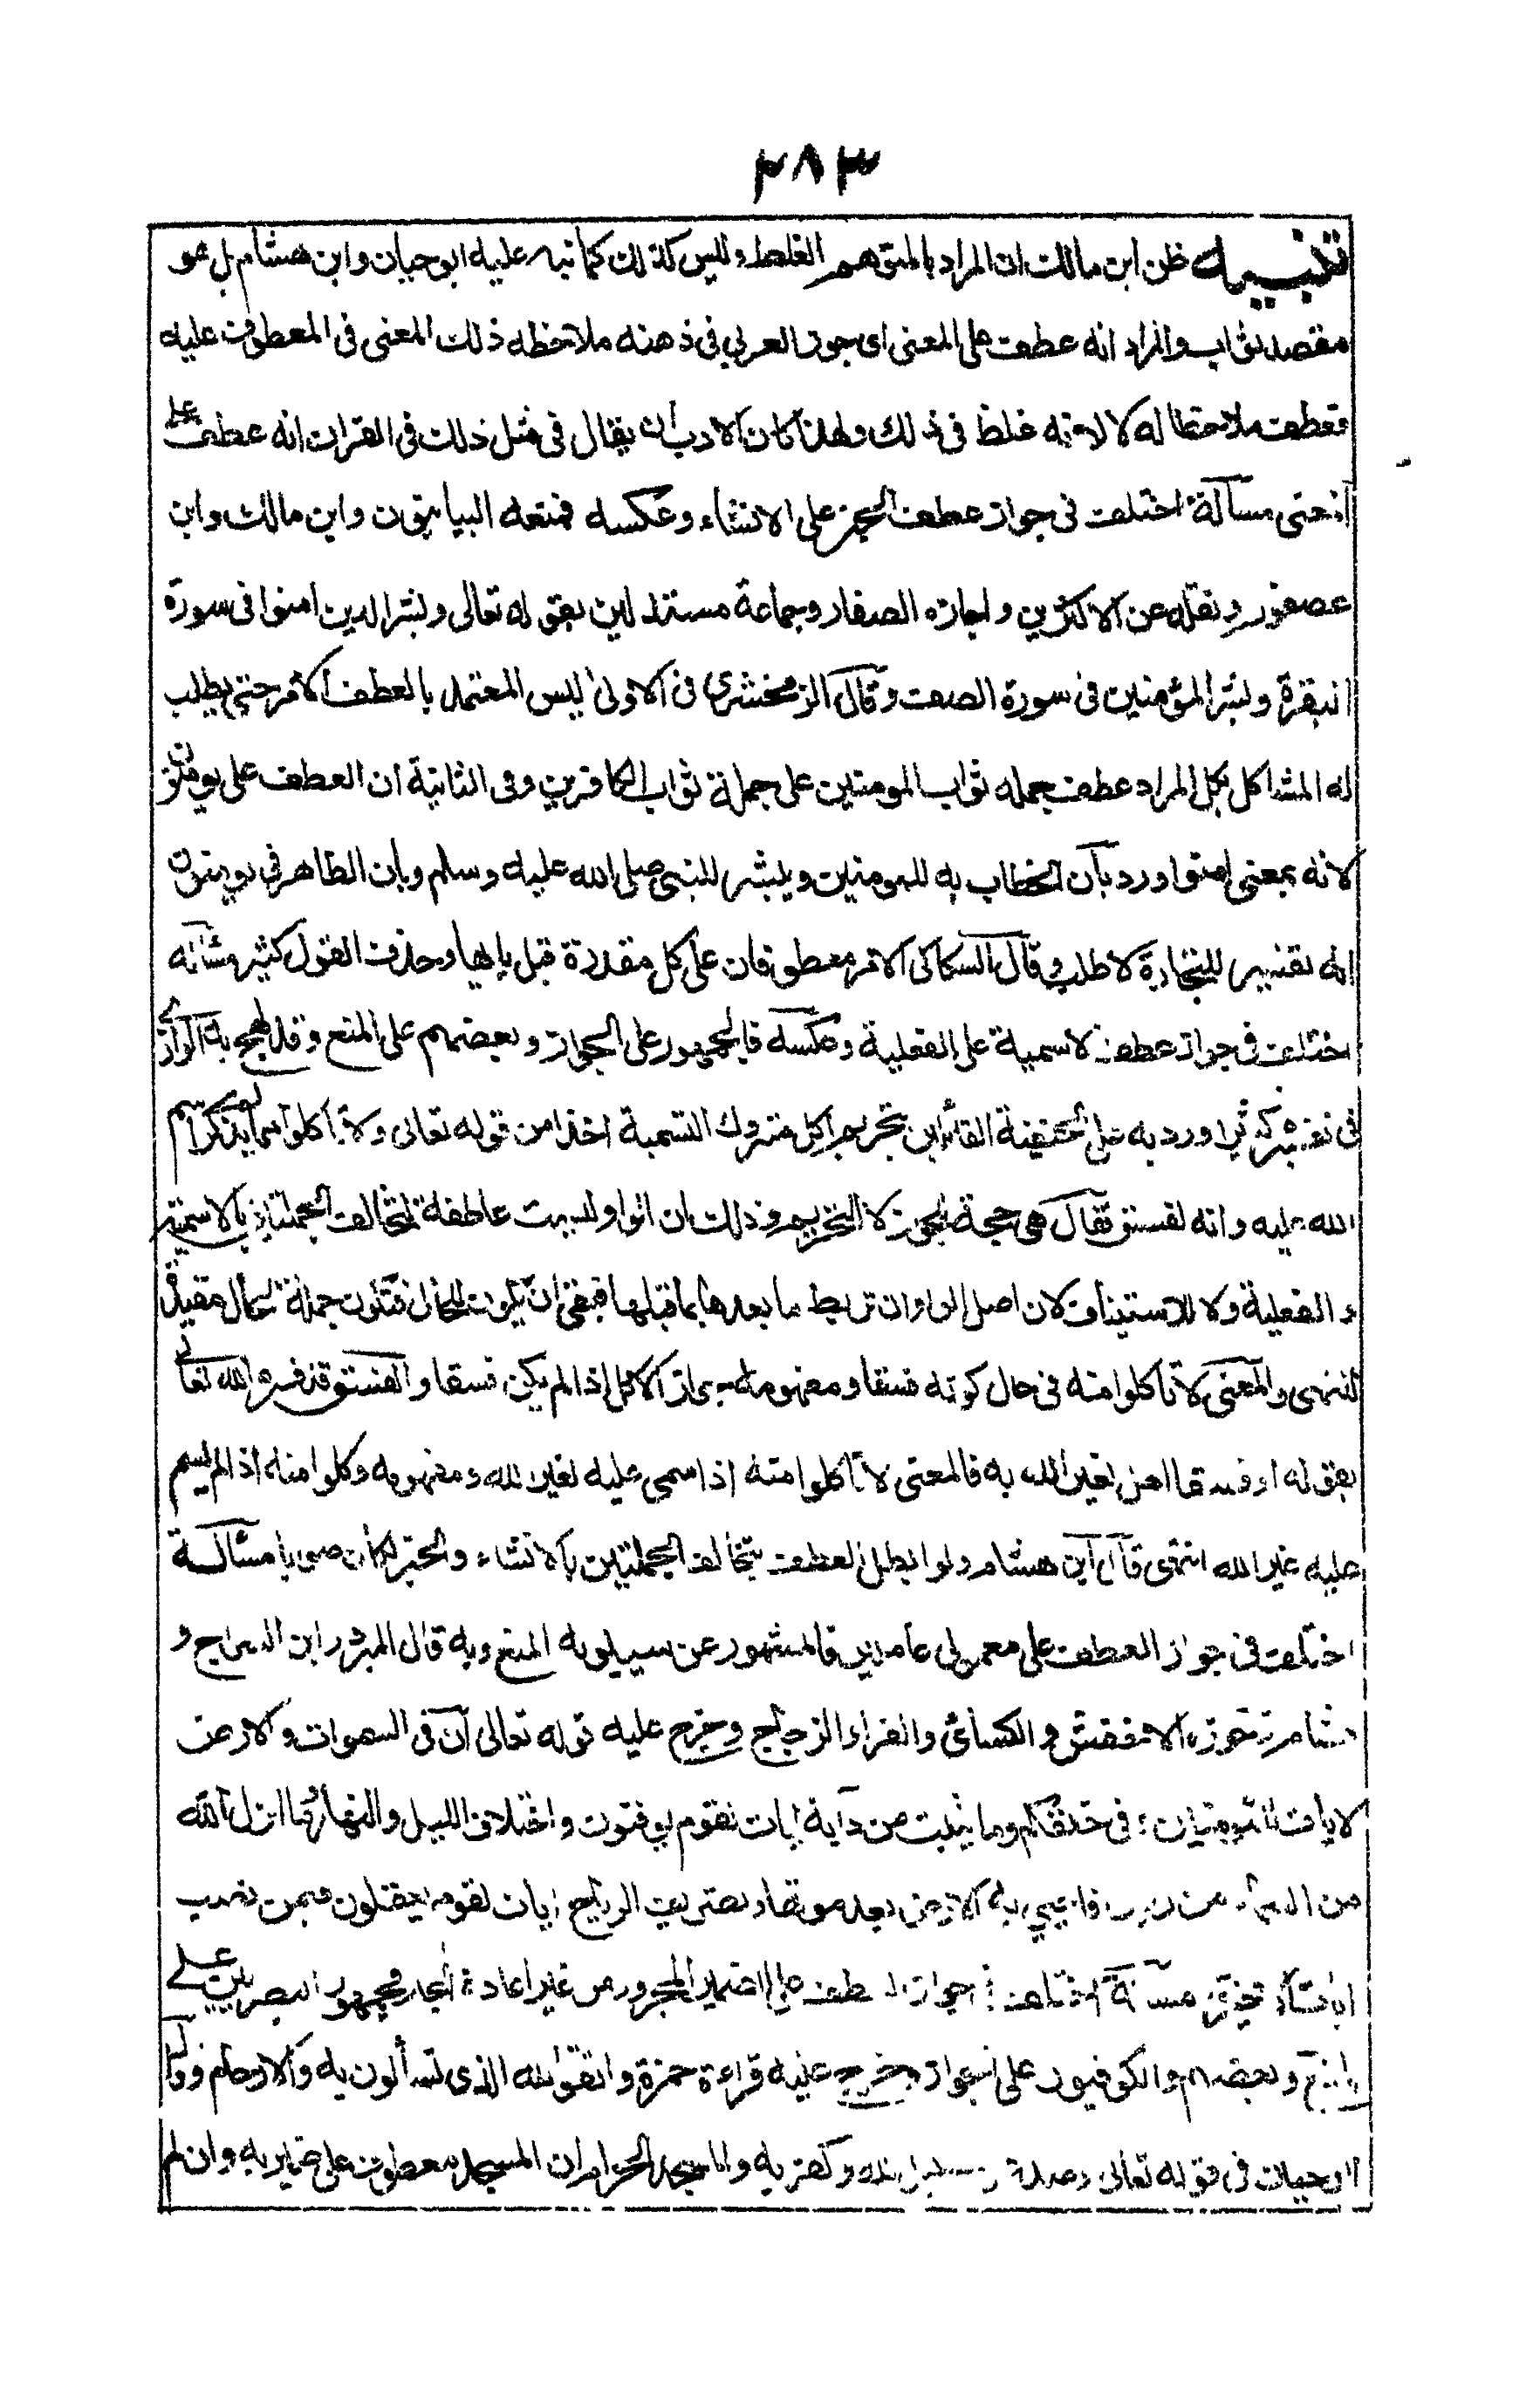 ٢٨٣
تنبيه ظن ابن مالك ان المراد بالتوهم الغلط وليس كذلك كما نبه عليه ابو حيان وابن هشام بل هو
مقصد صواب والمراد انه عطف على المعنى اى جوز العربي فى ذهنه ملاحظة ذلك المعنى فى المعطوف عليه
فعطف ملاحظا له لا انه غلط فى ذلك ولهذا كان الادب ان يقال فى مثل ذلك فى القران انه عطف على
المعنى مسألة اختلف فى جواز عطف الخبر على الانشاء وعكسه فمنعه البيانيون وابن مالك وابن
عصفور ونقله عن الاكثرين واجازه الصفار وجماعة مستدلين بقوله تعالى وبشر الذين امنوا فى سورة
البقرة وبشر المؤمنين فى سورة الصف وقال الزمخشرى فى الاولى ليس المعتمد بالعطف الامر حتى يطلب
له المشاكل بل المراد عطف جملة ثواب المومنين على جملة ثواب الكافرين وفى الثانية ان العطف على يومنون
لانه بمعنى امنوا ورد بأن الخطاب به للمومنين وببشر للنبى صلى الله عليه وسلم وبأن الظاهر فى يومنون
انه تفسير للتجارة لا طلب وقال السكاكى الامر معطوفان على كل مقدرة قبل يايها وحذف القول كثير مسألة
اختلف فى جواز عطف الاسمية على الفعلية وعكسه فالجمهور على الجواز وبعضهم على المنع وقد لهج به الرازى
فى تفسيره كثيرا ورد به على الحنفية القائلين بتحريم اكل متروك التسمية اخذا من قوله تعالى ولا تأكلوا مما لم يذكر اسم
الله عليه وانه لفسق فقال هى حجة للجواز لا للتحريم وذلك ان الواو ليست عاطفة لتخالف الجملتين بالاسمية
و الفعلية ولا للاستيناف لان اصل الواو ان تربط ما بعدها بما قبلها فبقى ان تكون للحال فتكون جملة الحال مقيدة
للنهى والمعنى لا تأكلوا منه فى حال كونه فسقا ومفهومه جواز الاكل اذا لم يكن فسقا والفسق قد فسره الله تعالى
بقوله او فسقا اهل لغير الله به فالمعنى لا تأكلوا منه اذا سمى عليه لغير الله ومفهومه وكلوا منه اذا لم يسم
عليه غير الله انتهى قال ابن هشام ولو ابطل العطف بتخالف الجملتين بالانشاء والخبر لكان صوابا مسألة
اختلف فى جواز العطف على معمولى عاملين فالمشهور عن سيبويه المنع وبه قال المبرد وابن السراج و
هشام وجوزه الاخفش والكسائى والفراء والزجاج وخرج عليه قوله تعالى ان فى السموات والارض
لايات للمومنين وفى خلقكم وما يبث من دآبة ايات لقوم يوقنون واختلاف الليل والنهار وما انزل الله
من السماء من رزق فاحيى به الارض بعد موتها وتصريف الرياح ايات لقوم يعقلون فيمن نصب
ايات الاخيرة مسألة اختلف فى جواز العطف على الضمير المجرور من غير اعادة الجار فجمهور البصريين على
المنع وبعضهم والكوفيون على الجواز وخرج عليه قراءة حمزة واتقوا الله الذى تسألون به والارحام وقال
ابوحيان فى قوله تعالى وصد عن سبيل الله وكفر به والمسجد الحرام ان المسجد معطوف على ضمير به وان لم